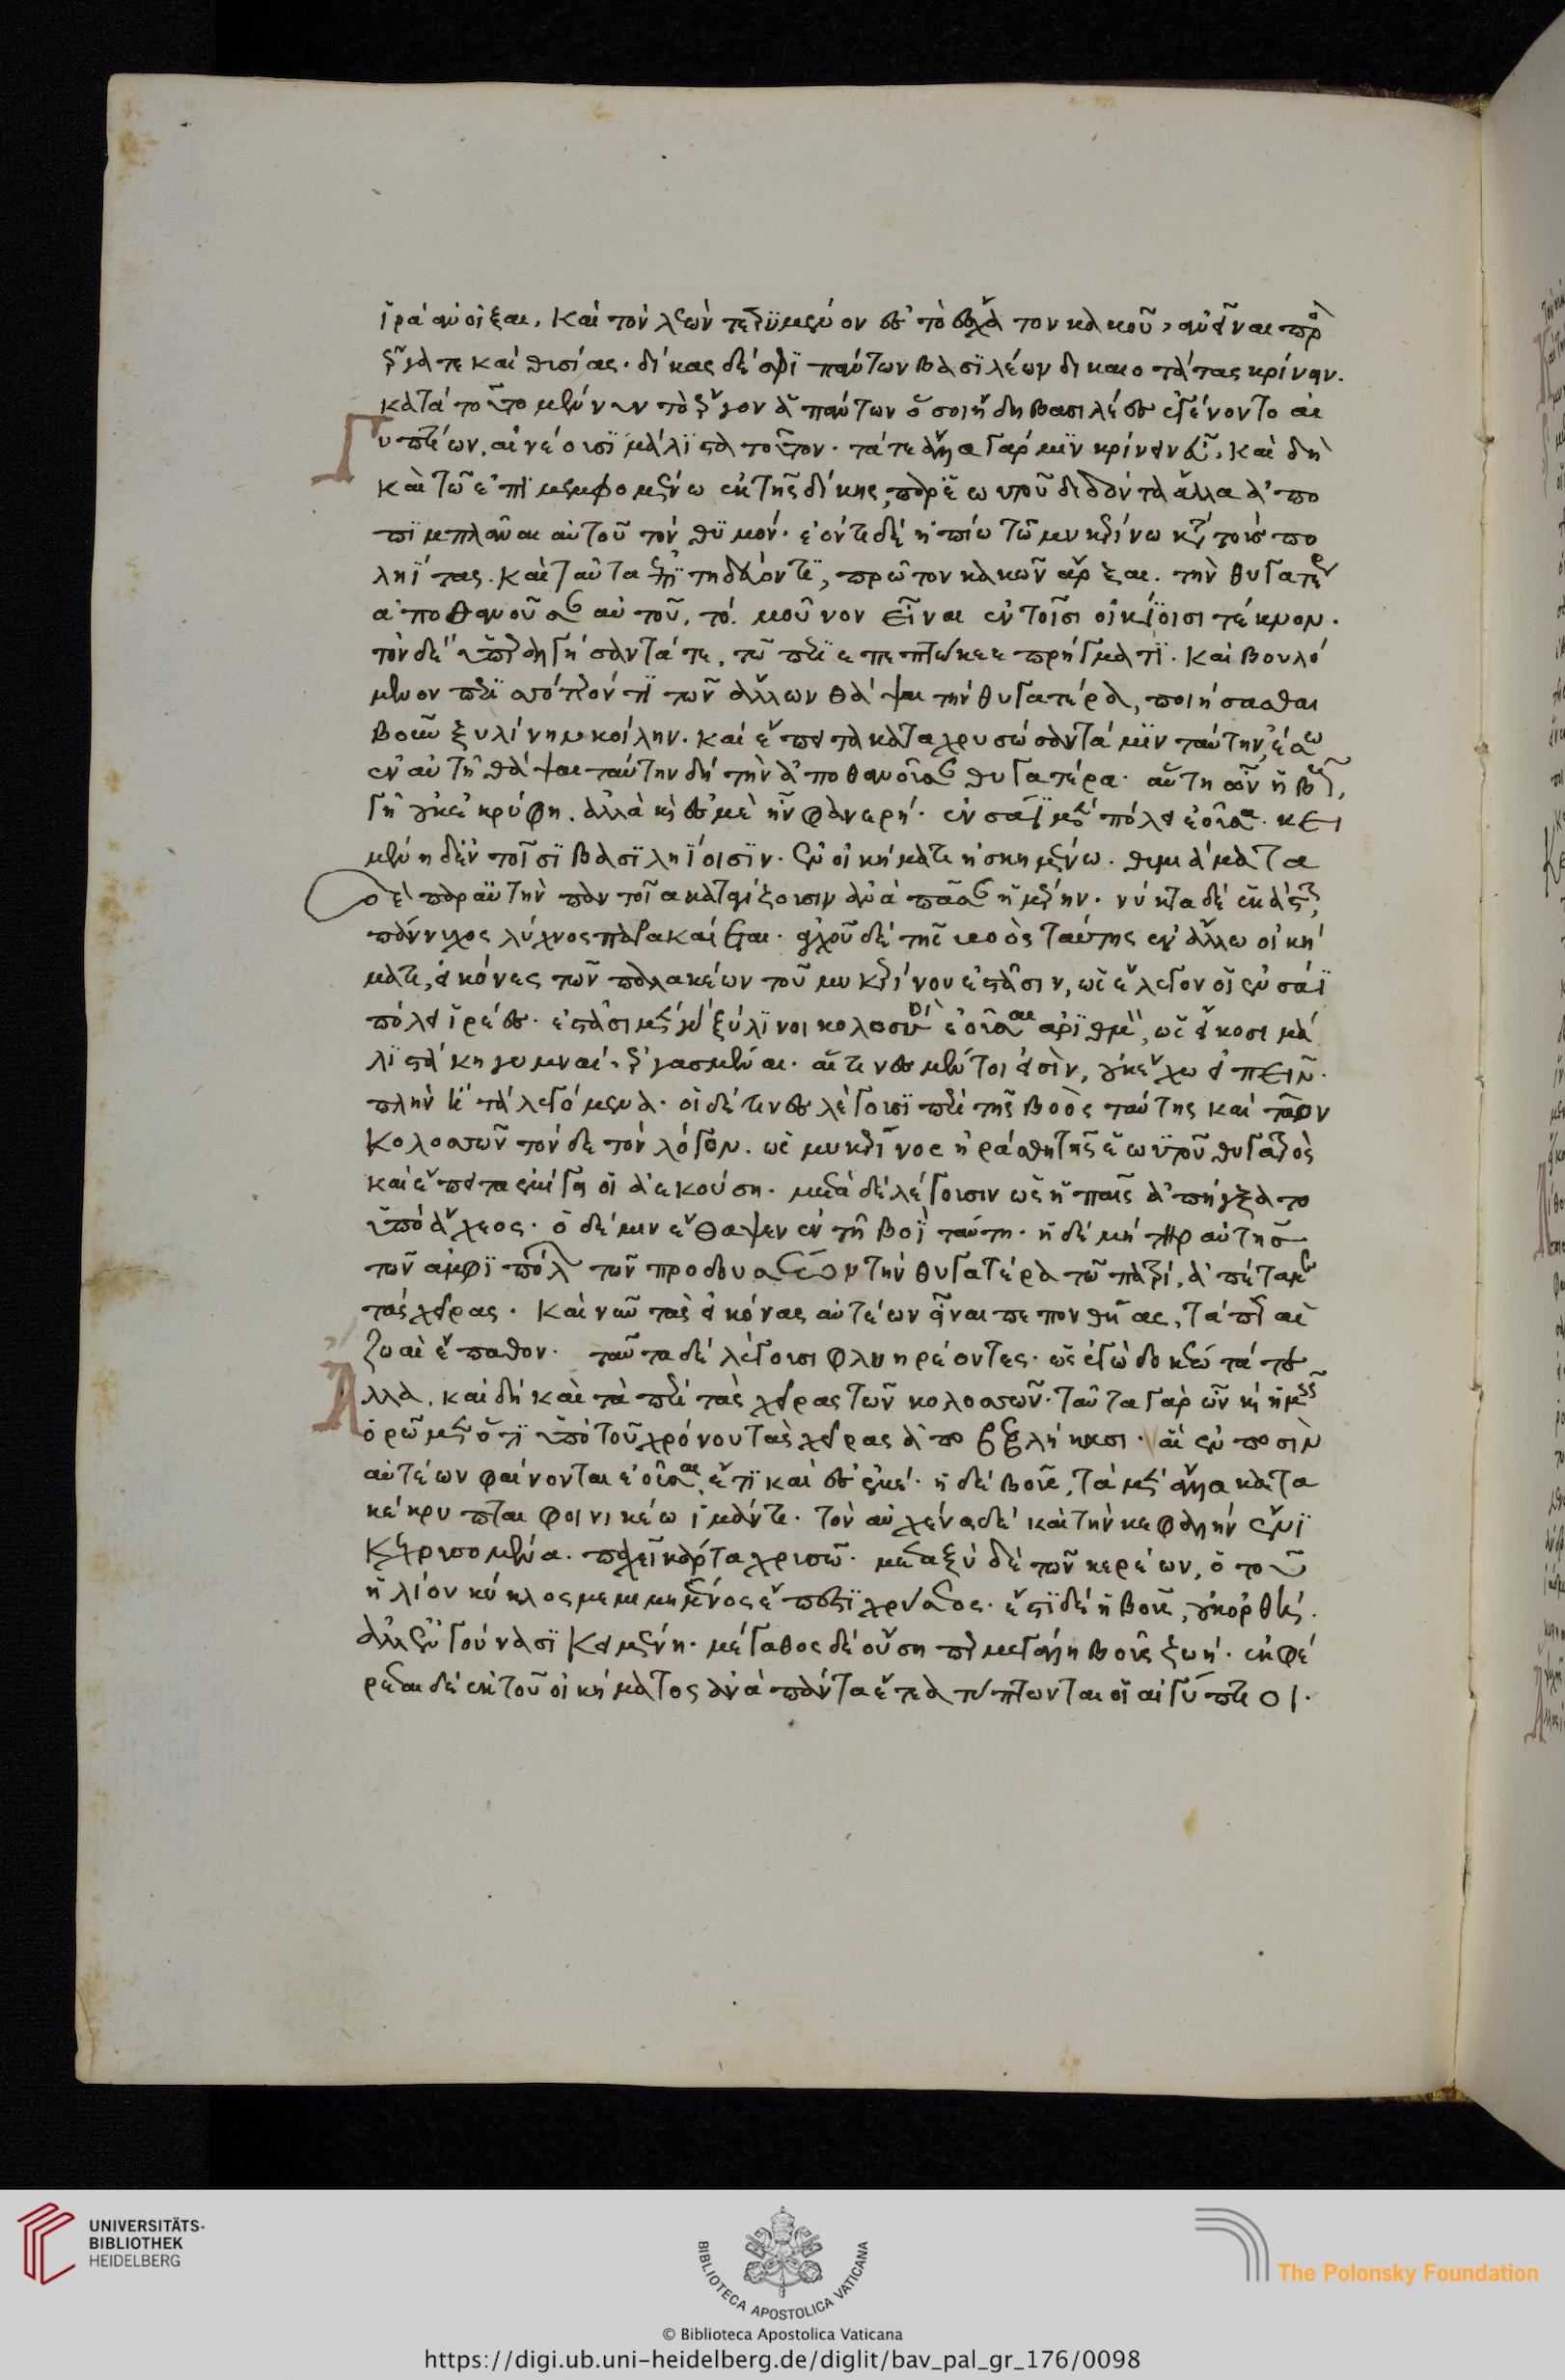 ἱρὰ ἀνοῖξαι. καὶ τὸν λεὼν τετρυμένον ἐς τὸ ἔσχατον κακοῦ, ἀνεῖναι πρὸς
ἔργα τε καὶ θυσίας. δίκας δέ σφϊ πάντων βασϊλέων δικαιοτάτας κρίνειν.
κατὰ τοῦτο μέν νυν τὸ ἔργον ἁπάντων ὅσοι ἤδη βασιλέες ἐγένοντο αἰ
γυπτίων, αἰνέουσϊ μάλϊστα τοῦτον. τά τε ἄλλα γάρ μϊν κρίνειν εὖ, καὶ δὴ
καὶ τῶ ἐπϊμεμφομένω ἐκ τῆς δίκης, παρ' ἑωυτοῦ διδόντα ἄλλα ἀπο
πϊμπλάναι αὐτοῦ τὸν θϋμόν. ἐόντι δὲ ἠπίω τῶ μυκερίνω κατὰ τοὺς πο
λϊήτας. καὶ ταῦτα ἐπϊτηδεύοντϊ, πρῶτον κακῶν ἄρξαι. τὴν θυγατέρα
ἀποθανοῦσαν αὐτοῦ. τὸ μοῦνον εἶναι ἐν τοῖσι οἰκίοισι τέκνον.
τὸν δὲ ὑπεραλγήσαντά τε, τῶ περϊεπεπτώκεε πρήγματϊ. καὶ βουλό
μενον περϊσσότερόν τϊ τῶν ἄλλων θάψαι τὴν θυγατέρα, ποιήσασθαι
βοῦν ξυλίνην κοίλην. καὶ ἔπειτα καταχρυσώσαντά μϊν ταύτην, ἔσω
ἐν αὐτῆ θάψαι ταύτην δὴ τὴν ἀποθανοῦσαν θυγατέρα. αὕτη ὦν ἡ βοῦς,
γῆ οὐκ ἐκρύφθη. ἀλλὰ καὶ ἐς ἐμὲ ἦν φανερή. ἐν σάϊ μὲν πόλει ἐοῦσα. κει
μένη δὲ ἐν τοῖσϊ βασϊληΐοισϊν. ἐν οἰκήματι ἠσκημένω. θυμιάματα
δὲ παρ' αὐτὴν παντοῖα καταγίζουσιν ἀνὰ πᾶσαν ἡμέρην. νύκτα δὲ ἑκάστην,
πάννυχος λύχνος παρακαίεται. ἀγχοῦ δὲ τῆς βοὸς ταύτης ἐν ἄλλω οἰκή
ματι, εἰκόνες τῶν παλακέων τοῦ μυκερίνου ἑστᾶσιν, ὡς ἔλεγον οἱ ἐν σάϊ
πόλει ἱρέες. ἑστᾶσι μὲν γὰρ ξύλϊνοι κολοσσοὶ ἐοῦσαι ἀρϊθμὸν, ὡς εἴκοσι μά
λϊστά κη γυμναὶ ἐργασμέναι. αἵτινες μέντοι εἰσὶν, οὐκ ἔχω εἰπεῖν.
πλὴν ἢ τὰ λεγόμενα. οἱ δέ τινες λέγουσϊ περὶ τῆς βοὸς ταύτης καὶ τῶν
κολοσσῶν τόνδε τὸν λόγον. ὡς μυκερῖνος ἠράσθη τῆς ἑωϋτοῦ θυγατρὸς
καὶ ἔπειτα ἐμίγη οἱ ἀεκούση. μετὰ δὲ λέγουσιν ὡς ἡ παῖς ἀπήγξατο
ὑπὸ ἄχεος. ὁ δέ μιν ἔθαψεν ἐν τῆ βοῒ ταύτη. ἡ δὲ μήτηρ αὐτῆς
τῶν ἀμφϊπόλων τῶν προδουσέων τὴν θυγατέρα τῶ πατρὶ, ἀπέταμεν
τὰς χεῖρας. καὶ νῦν τὰς εἰκόνας αὐτέων εἶναι πεπονθυίας, τά περ αἱ
ζωαὶ ἔπαθον. ταῦτα δὲ λέγουσι φληνρέοντες. ὡς ἐγὼ δοκέω τά τε
ἄλλα. καὶ δὴ καὶ τὰ περὶ τὰς χεῖρας τῶν κολοσσῶν. ταῦτα γὰρ ὦν καὶ ἡμεῖς
ὁρῶμεν ὅτϊ ὑπὸ τοῦ χρόνου τὰς χεῖρας ἀποβεβλήκασι. αἳ ἐν ποσὶν
αὐτέων φαίνονται ἐοῦσαι ἔτϊ καὶ ἐς ἐμέ. ἡ δὲ βοῦς, τὰ μὲν ἄλλα κατα
κέκρυπται φοινικέω ἱμάντι. τὸν αὐχένα δὲ καὶ τὴν κεφαλὴν
κεχρυσωμένα. παχεῖ κάρτα χρυσῶ. μεταξὺ δὲ τῶν κερέων, ὁ τοῦ
ἡλίου κύκλος μεμιμημένος ἔπεστϊ χρύσεος. ἔστϊ δὲ ἡ βοῦς, οὐκ ὀρθή.
ἀλλ' ἐν γούνασϊ κειμένη. μέγαθος δὲ ὅση περ μεγάλη βοῦς ζωή. ἐκφέ
ρεται δὲ ἐκ τοῦ οἰκήματος ἀνὰ πάντα ἔτεα τύπτωνται οἱ αἰγύπτιοι.
UNIVERSITÄTS-
BIBLIOTHEK
HEIDELBERG
BIBLIOTECA APOSTOLICA VATICANA
The Polonsky Foundation
© Biblioteca Apostolica Vaticana
https://digi.ub.uni-heidelberg.de/diglit/bav_pal_gr_176/0098